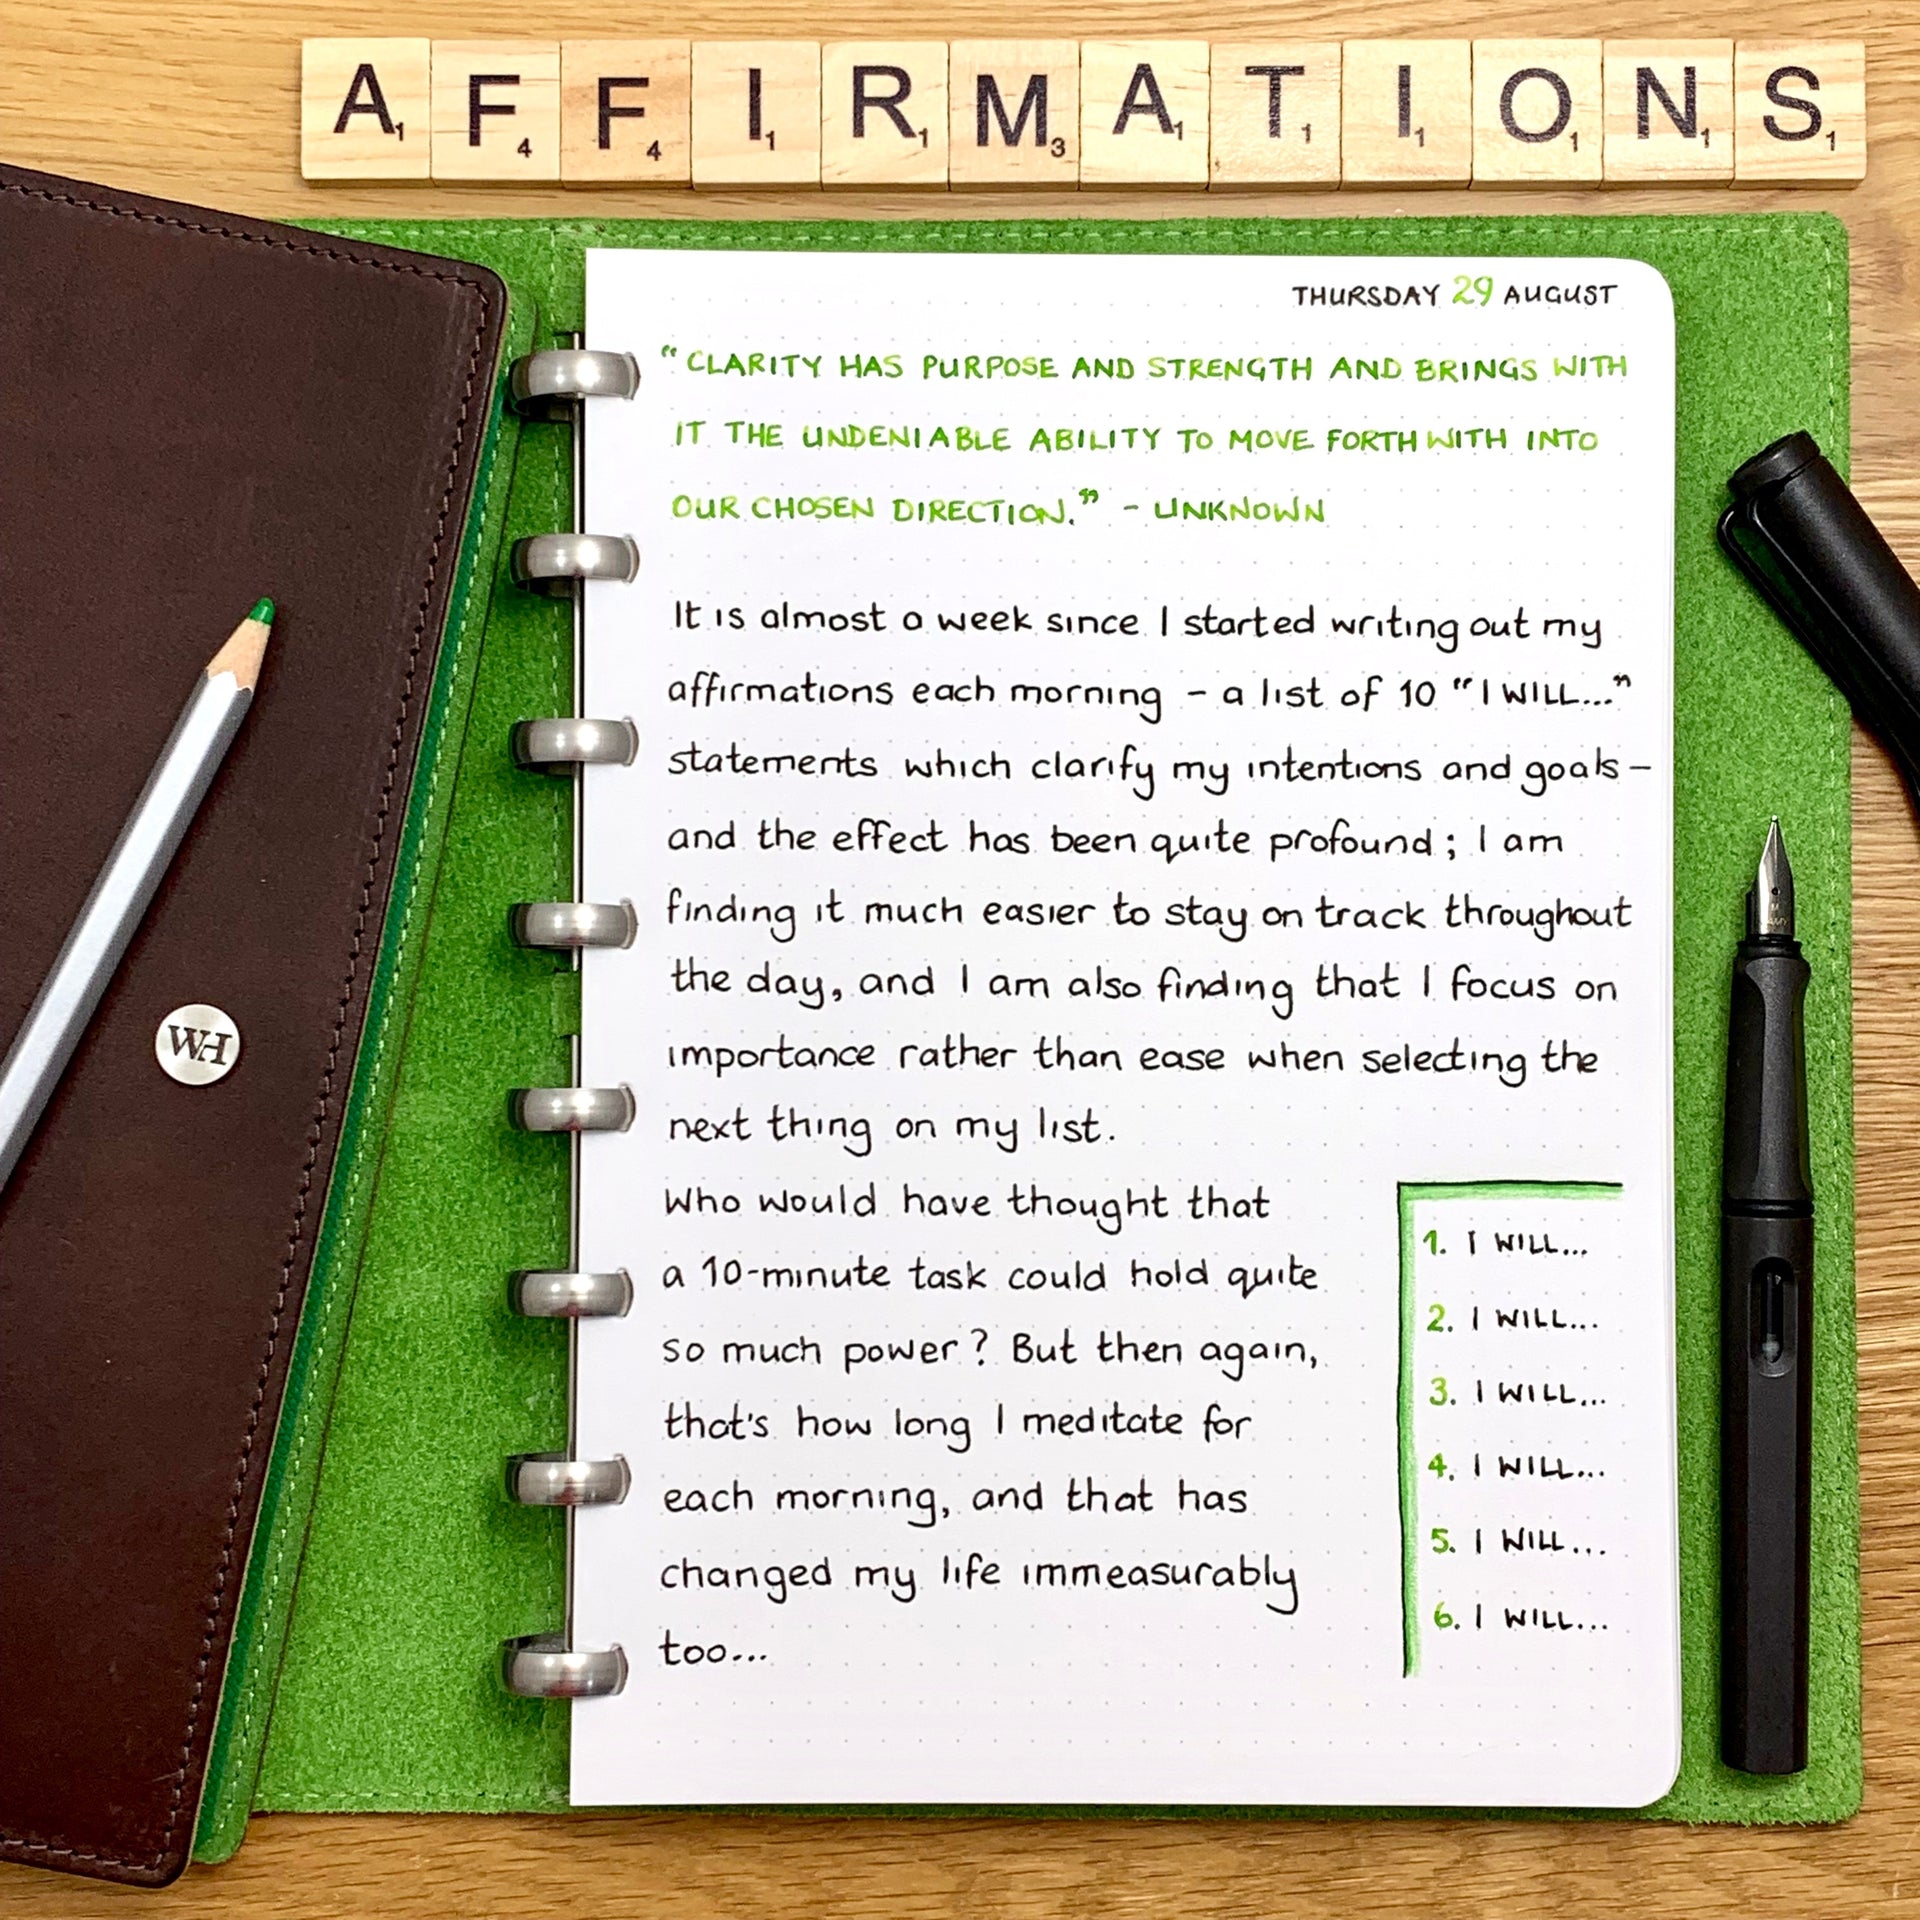 A1 F4 F4 I1 R1 M3 A1 T1 I1 O1 N1 S1
THURSDAY 29 AUGUST
“CLARITY HAS PURPOSE AND STRENGTH AND BRINGS WITH
IT THE UNDENIABLE ABILITY TO MOVE FORTHWITH INTO
OUR CHOSEN DIRECTION.” – UNKNOWN
It is almost a week since I started writing out my
affirmations each morning – a list of 10 “I WILL...”
statements which clarify my intentions and goals –
and the effect has been quite profound; I am
finding it much easier to stay on track throughout
the day, and I am also finding that I focus on
importance rather than ease when selecting the
next thing on my list.
Who would have thought that
a 10-minute task could hold quite
so much power? But then again,
that's how long I meditate for
each morning, and that has
changed my life immeasurably
too...
1. I WILL...
2. I WILL...
3. I WILL...
4. I WILL...
5. I WILL...
6. I WILL...
WH